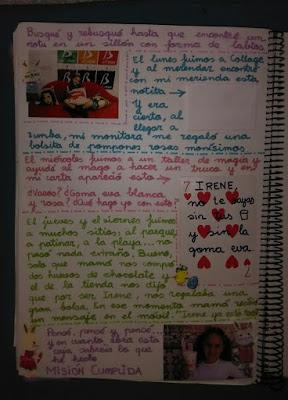 Busqué y rebusqué hasta que encontré un
notu en un sillón con forma de labios.
El lunes fuimos a Collage
y al merendar encontré
con mi merienda esta
notita →
Y era
cierto, al
llegar a
Zumba, mi monitora me regaló una
bolsita de pompones rosas monísimos.
El miércoles fuimos a un taller de magia y
ayudé al mago a hacer un truco y en
mi carta apareció esto →
¿Vasos? ¿Goma eva blanca
y rosa? ¿Qué hago yo con esto?
7 IRENE,
no te vayas
sin las
y sin la
goma eva
7
El jueves y el viernes fuimos
a muchos sitios: al parque,
a patinar, a la playa... no
pasó nada extraño. Bueno,
solo que mamá nos compró
dos huevos de chocolate y
el de la tienda nos dijo
que por ser Irene, nos regalaba una
gran bolsa. En ese momento mamá recibió
un mensaje en el móvil: "Irene ya está todo"
Pensé, pensé y pensé,
y en cuanto abra esta
caja sabréis lo que
he hecho
MISIÓN CUMPLIDA